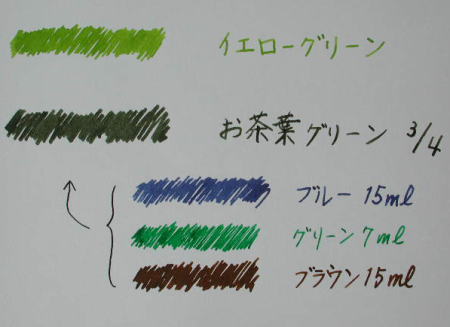 イエローグリーン
お茶葉グリーン 3/4
ブルー 15ml
グリーン 7ml
ブラウン 15ml